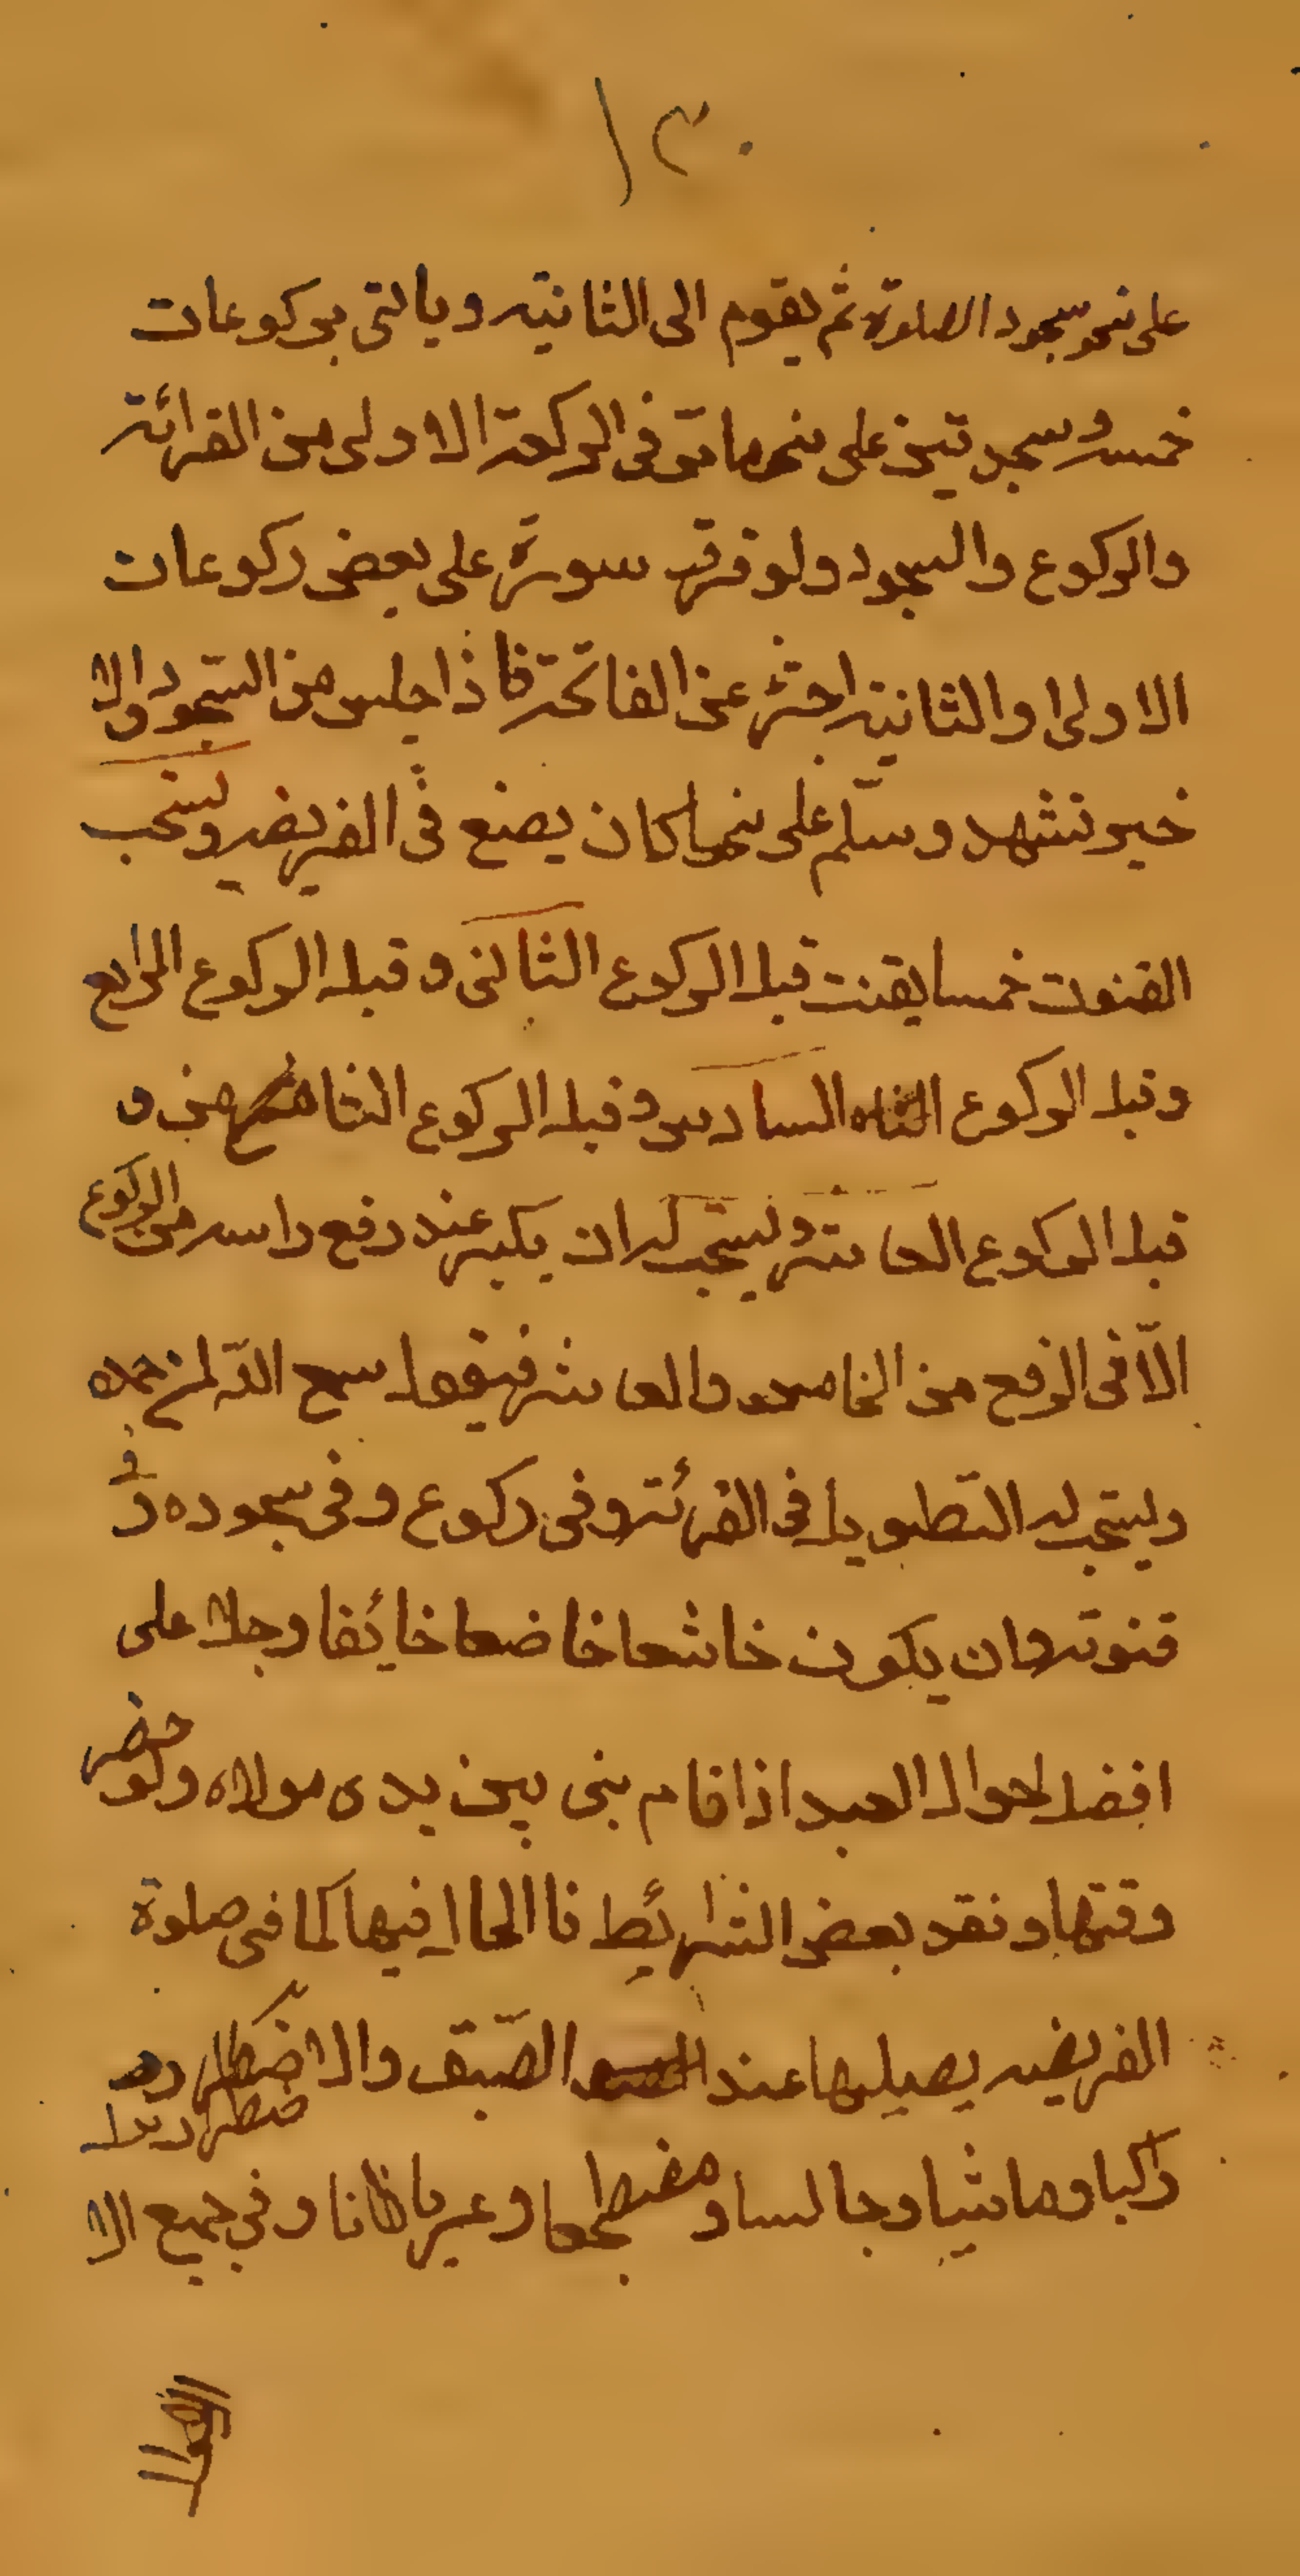 ١٣٠
على نحو سجود الصلوة ثم يقوم الى الثانية وياتى بركوعات
خمسه وسجدتين على نحو ما مّر فى الركعة الاولى من القرائة
والركوع والسجود ولو فرق سورة على بعض ركوعات
الاولى او الثانية اجتزء عن الفاتحة فاذا جلس من السّجود الا
خير تشهد وسلّم على نحو ما كان يصنع فى الفريضه ويستحب
القنوت خمسا يقنت قبل الركوع الثانى و قبل الركوع الرابع
وقبل الركوع السادس و قبل الركوع الثامن و
قبل الركوع العاشر ويستحب له ان يكبر عند رفع راسه من الركوع
الّا فى الرفع من الخامس والعاشر فيقول سمع اللّه لمن حمده
ويستحب له التطويل فى القرئة وفى ركوع و فى سجوده و فى
قنوته وان يكون خاشعا خاضعا خائفا وجلا على
افضل احوال العبد اذا قام بنى بين يدى مولاه ولو حضر
وقتها و فقد بعض الشرائط فا الحال فيها كما فى صلوة
الفريضه يصليها عند الضيق والاضطرار
راكبا وماشيا وجالسا ومضطجعا وعريانا وفى جميع الا